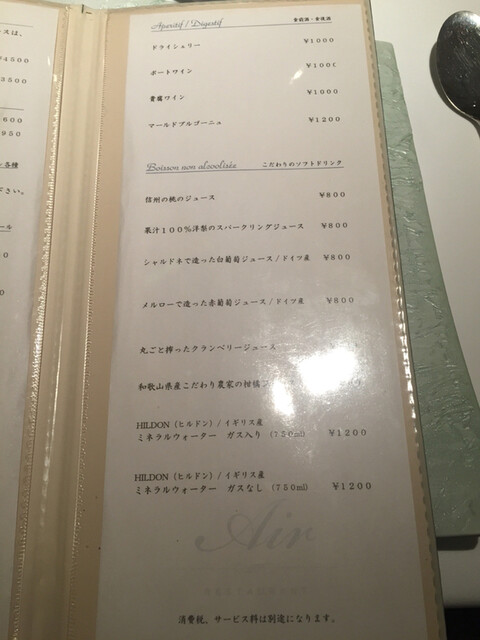 スは、
¥4500
3500
600
950
各種
さい。
ール
Aperitif / Digestif 食前酒・食後酒
ドライシェリー ¥1000
ポートワイン ¥1000
貴腐ワイン ¥1000
マールドブルゴーニュ ¥1200
Boisson non alcoolisée こだわりのソフトドリンク
信州の桃のジュース ¥800
果汁100%洋梨のスパークリングジュース ¥800
シャルドネで造った白葡萄ジュース / ドイツ産 ¥800
メルローで造った赤葡萄ジュース / ドイツ産 ¥800
丸ごと搾ったクランベリージュース
和歌山県産こだわり農家の柑橘
HILDON (ヒルドン) / イギリス産
ミネラルウォーター ガス入り (750ml) ¥1200
HILDON (ヒルドン) / イギリス産
ミネラルウォーター ガスなし (750ml) ¥1200
Air
消費税、サービス料は別途になります。